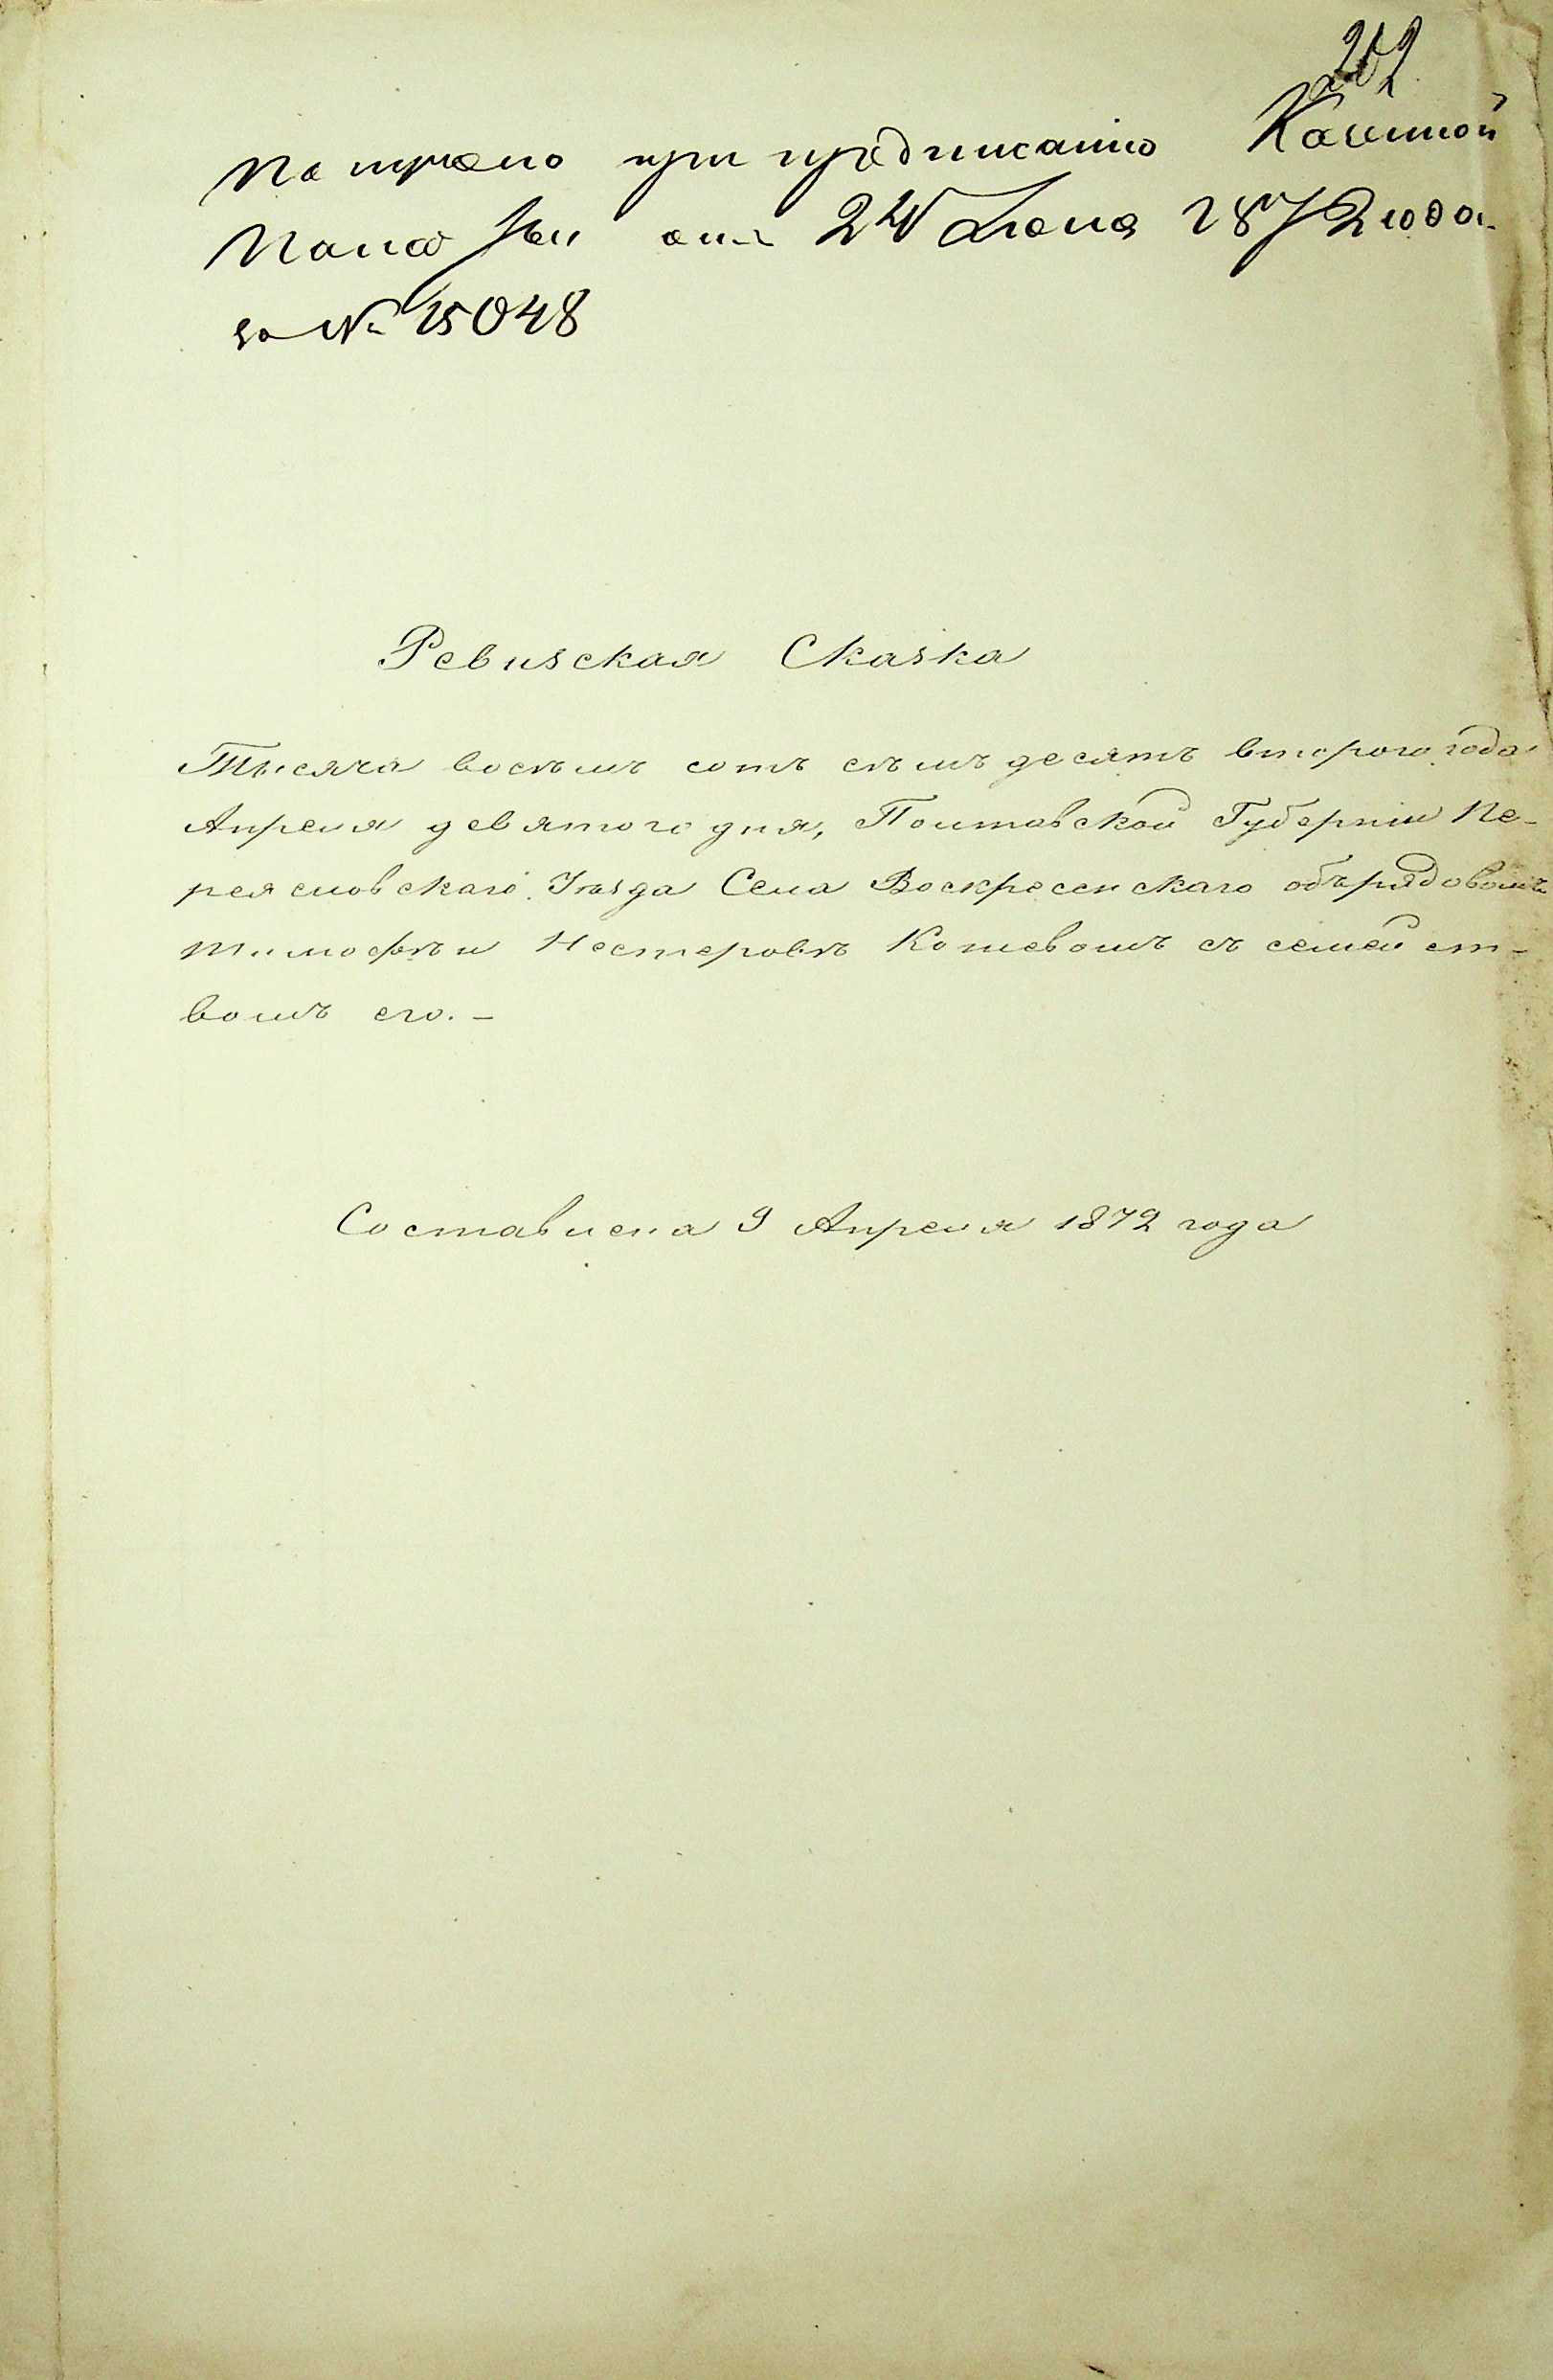 202
Получено при предписаніи Казенной
Палаты отъ 24 Июня 1872 года
за № 15048
Ревизская Сказка
Тысяча восѣмъ сотъ сѣмъ десятъ второго года
Апреля девятого дня, Полтавской Губерніи Пе-
реясловскаго Уѣзда Села Воскресенскаго объ рядовомъ
Тимофѣи Нестеровѣ Котевомъ съ семей ст-
вомъ его. –
Составлена 9 Апреля 1872 года